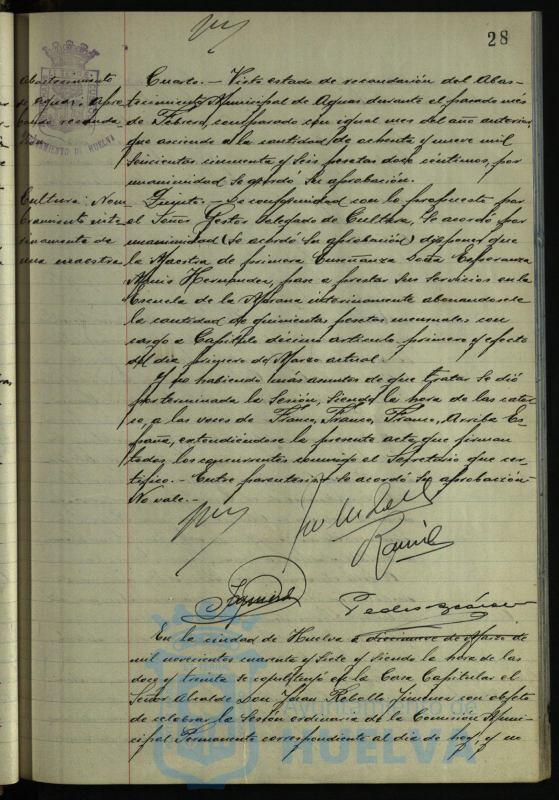 28
Abastecimiento
de Aguas: Apro
bando recauda
AYUNTAMIENTO DE HUELVA
Cuarto.- Visto estado de recaudación del Abas-
tecimiento Municipal de Aguas durante el pasado més
de Febrero, comparado con igual mes del año anterior,
que asciende a la cantidad de ochenta y nueve mil
Seiscientas cincuenta y Seis pesetas doce céntimos, por
unanimidad Se acordó Su aprobación.
Cultura: Nom
bramiento inte-
rinamente de
una maestra
De conformidad con lo propuesto por
el Señor Gestor delegado de Cultura, Se acordó por
unanimidad (Se acordó Su aprobación) disponer que
la Maestra de primera Enseñanza Doña Esperanza
Hernandez, pase a prestar Sus Servicios en la
Escuela de la interinamente abonandosele
la cantidad de quinientas pesetas mensuales con
cargo a Capítulo décimo artículo primero y efecto
del dia primero de Marzo actual.
Y no habiendo más asuntos de que tratar Se dió
por terminada la Sesión, Siendo la hora de las cator
ce, a las voces de Franco, Franco, Franco, Arriba Es-
paña, extendiéndose la presente acta, que firman
todos los concurrentes conmigo el Secretario que cer-
tifico.- Entre parentesis: Se acordó Su aprobación-
No vale.-
En la ciudad de Huelva a diecinueve de Marzo de
mil novecientos cuarenta y Siete y Siendo la hora de las
doce y treinta se constituyó en la Casa Capitular el
Señor Alcalde Don Juan Rebollo Jimenez con objeto
de celebrar la Sesión ordinaria de la Comisión Muni-
cipal Permanente correspondiente al dia de hoy, y no
Ayuntamiento de
HUELVA